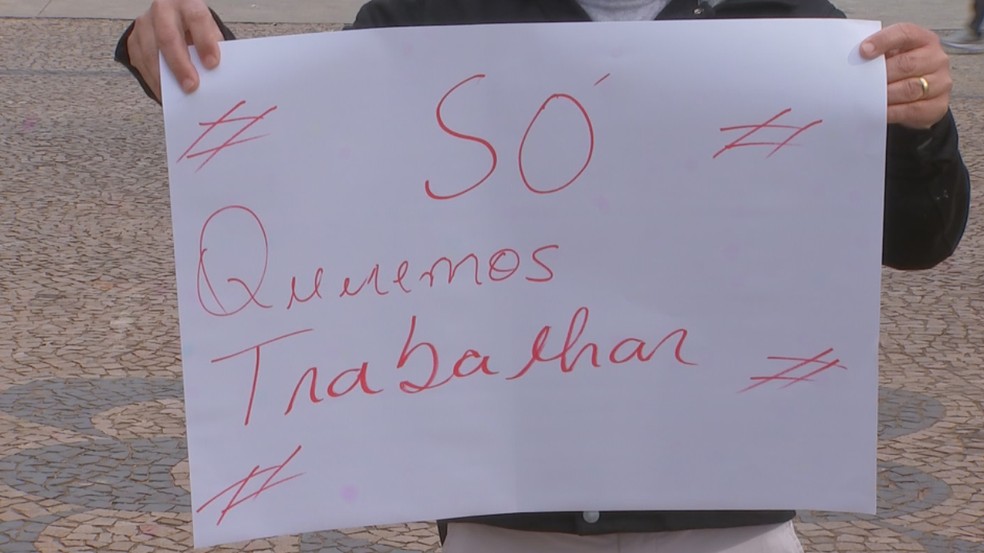 # SÓ #
Queremos
Trabalhar #
#